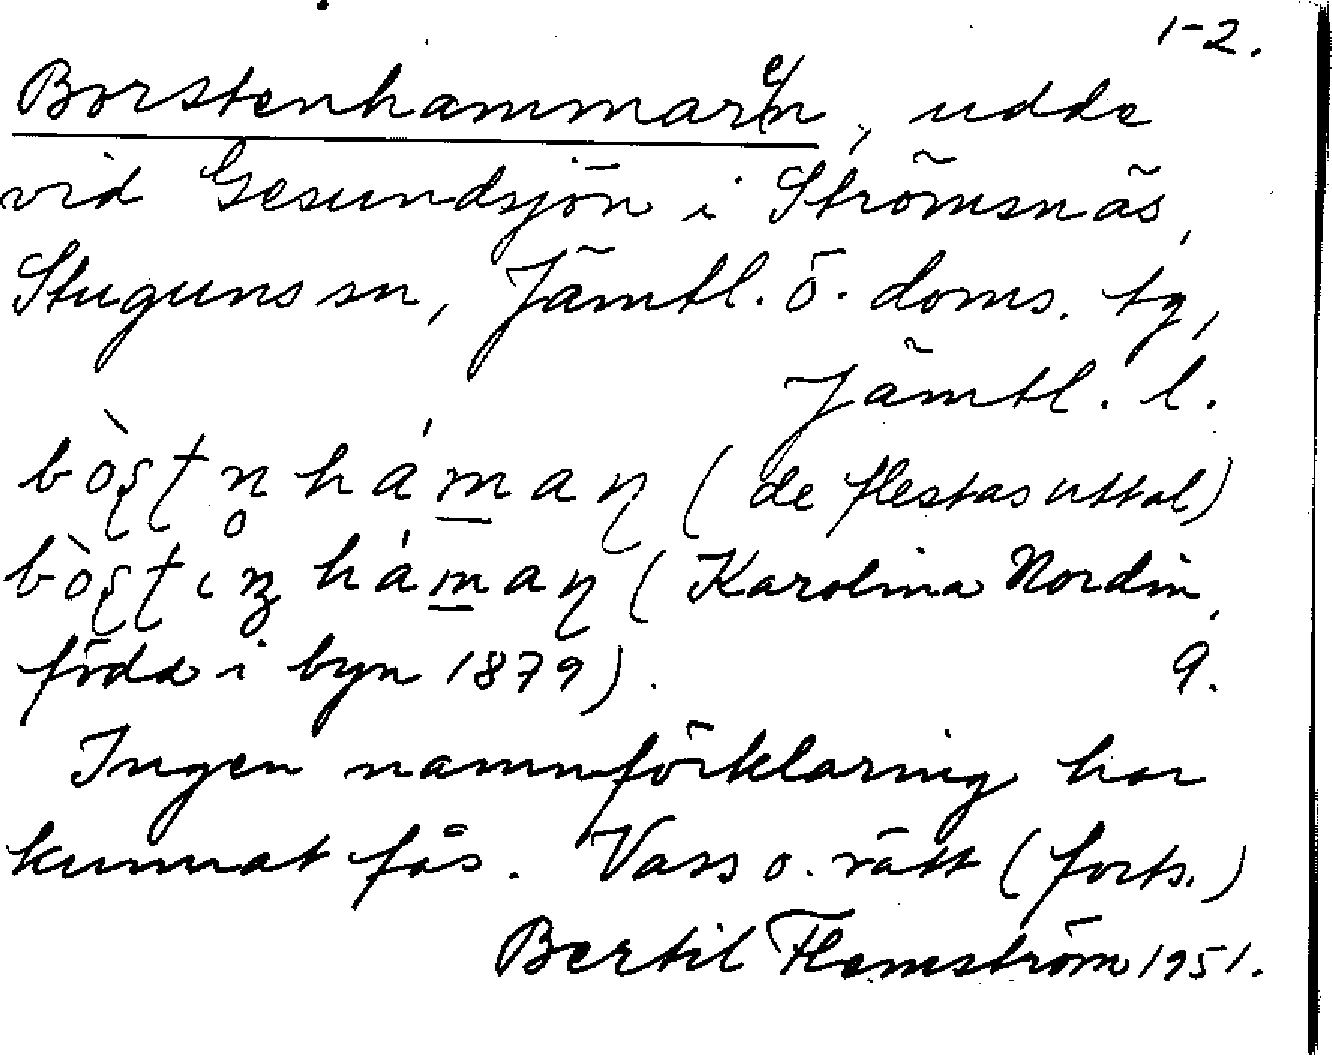 1-2.
Borstenhammar(e)n, udde
vid Gesundsjön i Strömsnäs,
Stuguns sn, Jämtl. ö. doms. tg,
Jämtl. l.
(de flestas uttal)
(Karolina Nordin,
född i byn 1879). 9.
Ingen namnförklaring har
kunnat fås. Vass o. rätt (forts.)
Bertil Flemström 1951.